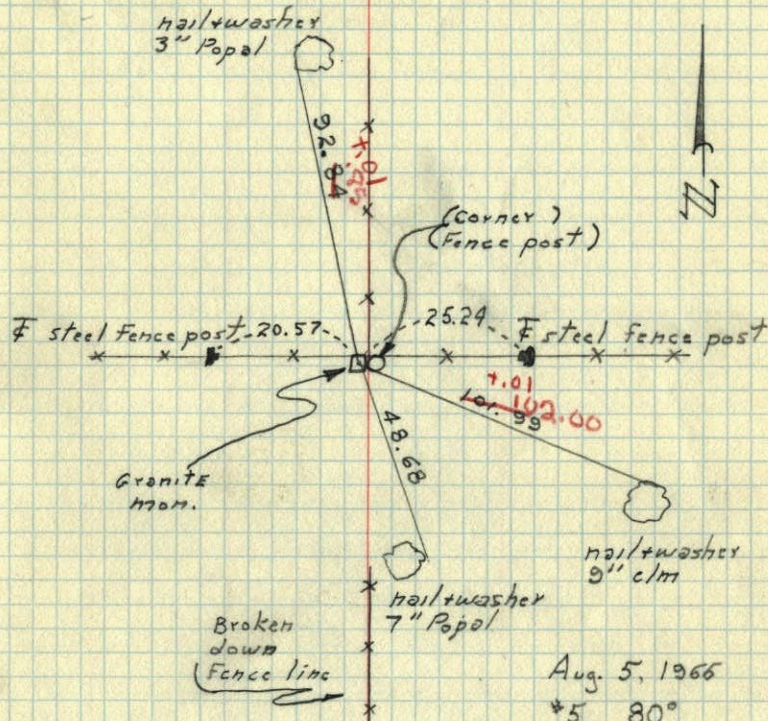 nail+washer
3" Popal
92.84
+.01
.85
(Corner)
(Fence post)
N
℄ steel Fence post
20.57
25.24
℄ steel fence post
+.01
101.99
102.00
48.68
Granite
mon.
nail+washer
9" elm
nail+washer
7" Popal
Broken
down
Fence line
Aug. 5, 1966
#5 80°